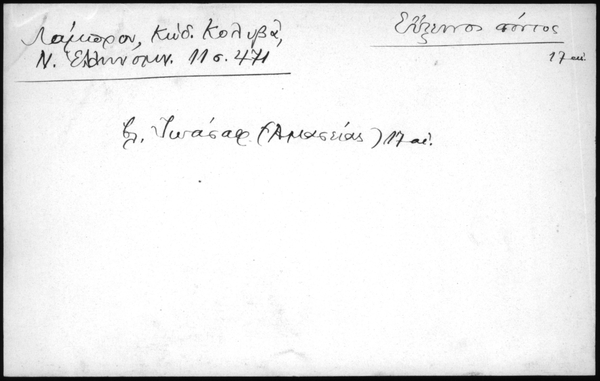 Λάμπρου, Κώδ. Κολυβᾶ,
Ν. Ἑλληνομν. 11 σ. 471
Εὔξεινος πόντος
17 αἰ.
βλ. (Ἀμασείας) 17 αἰ.